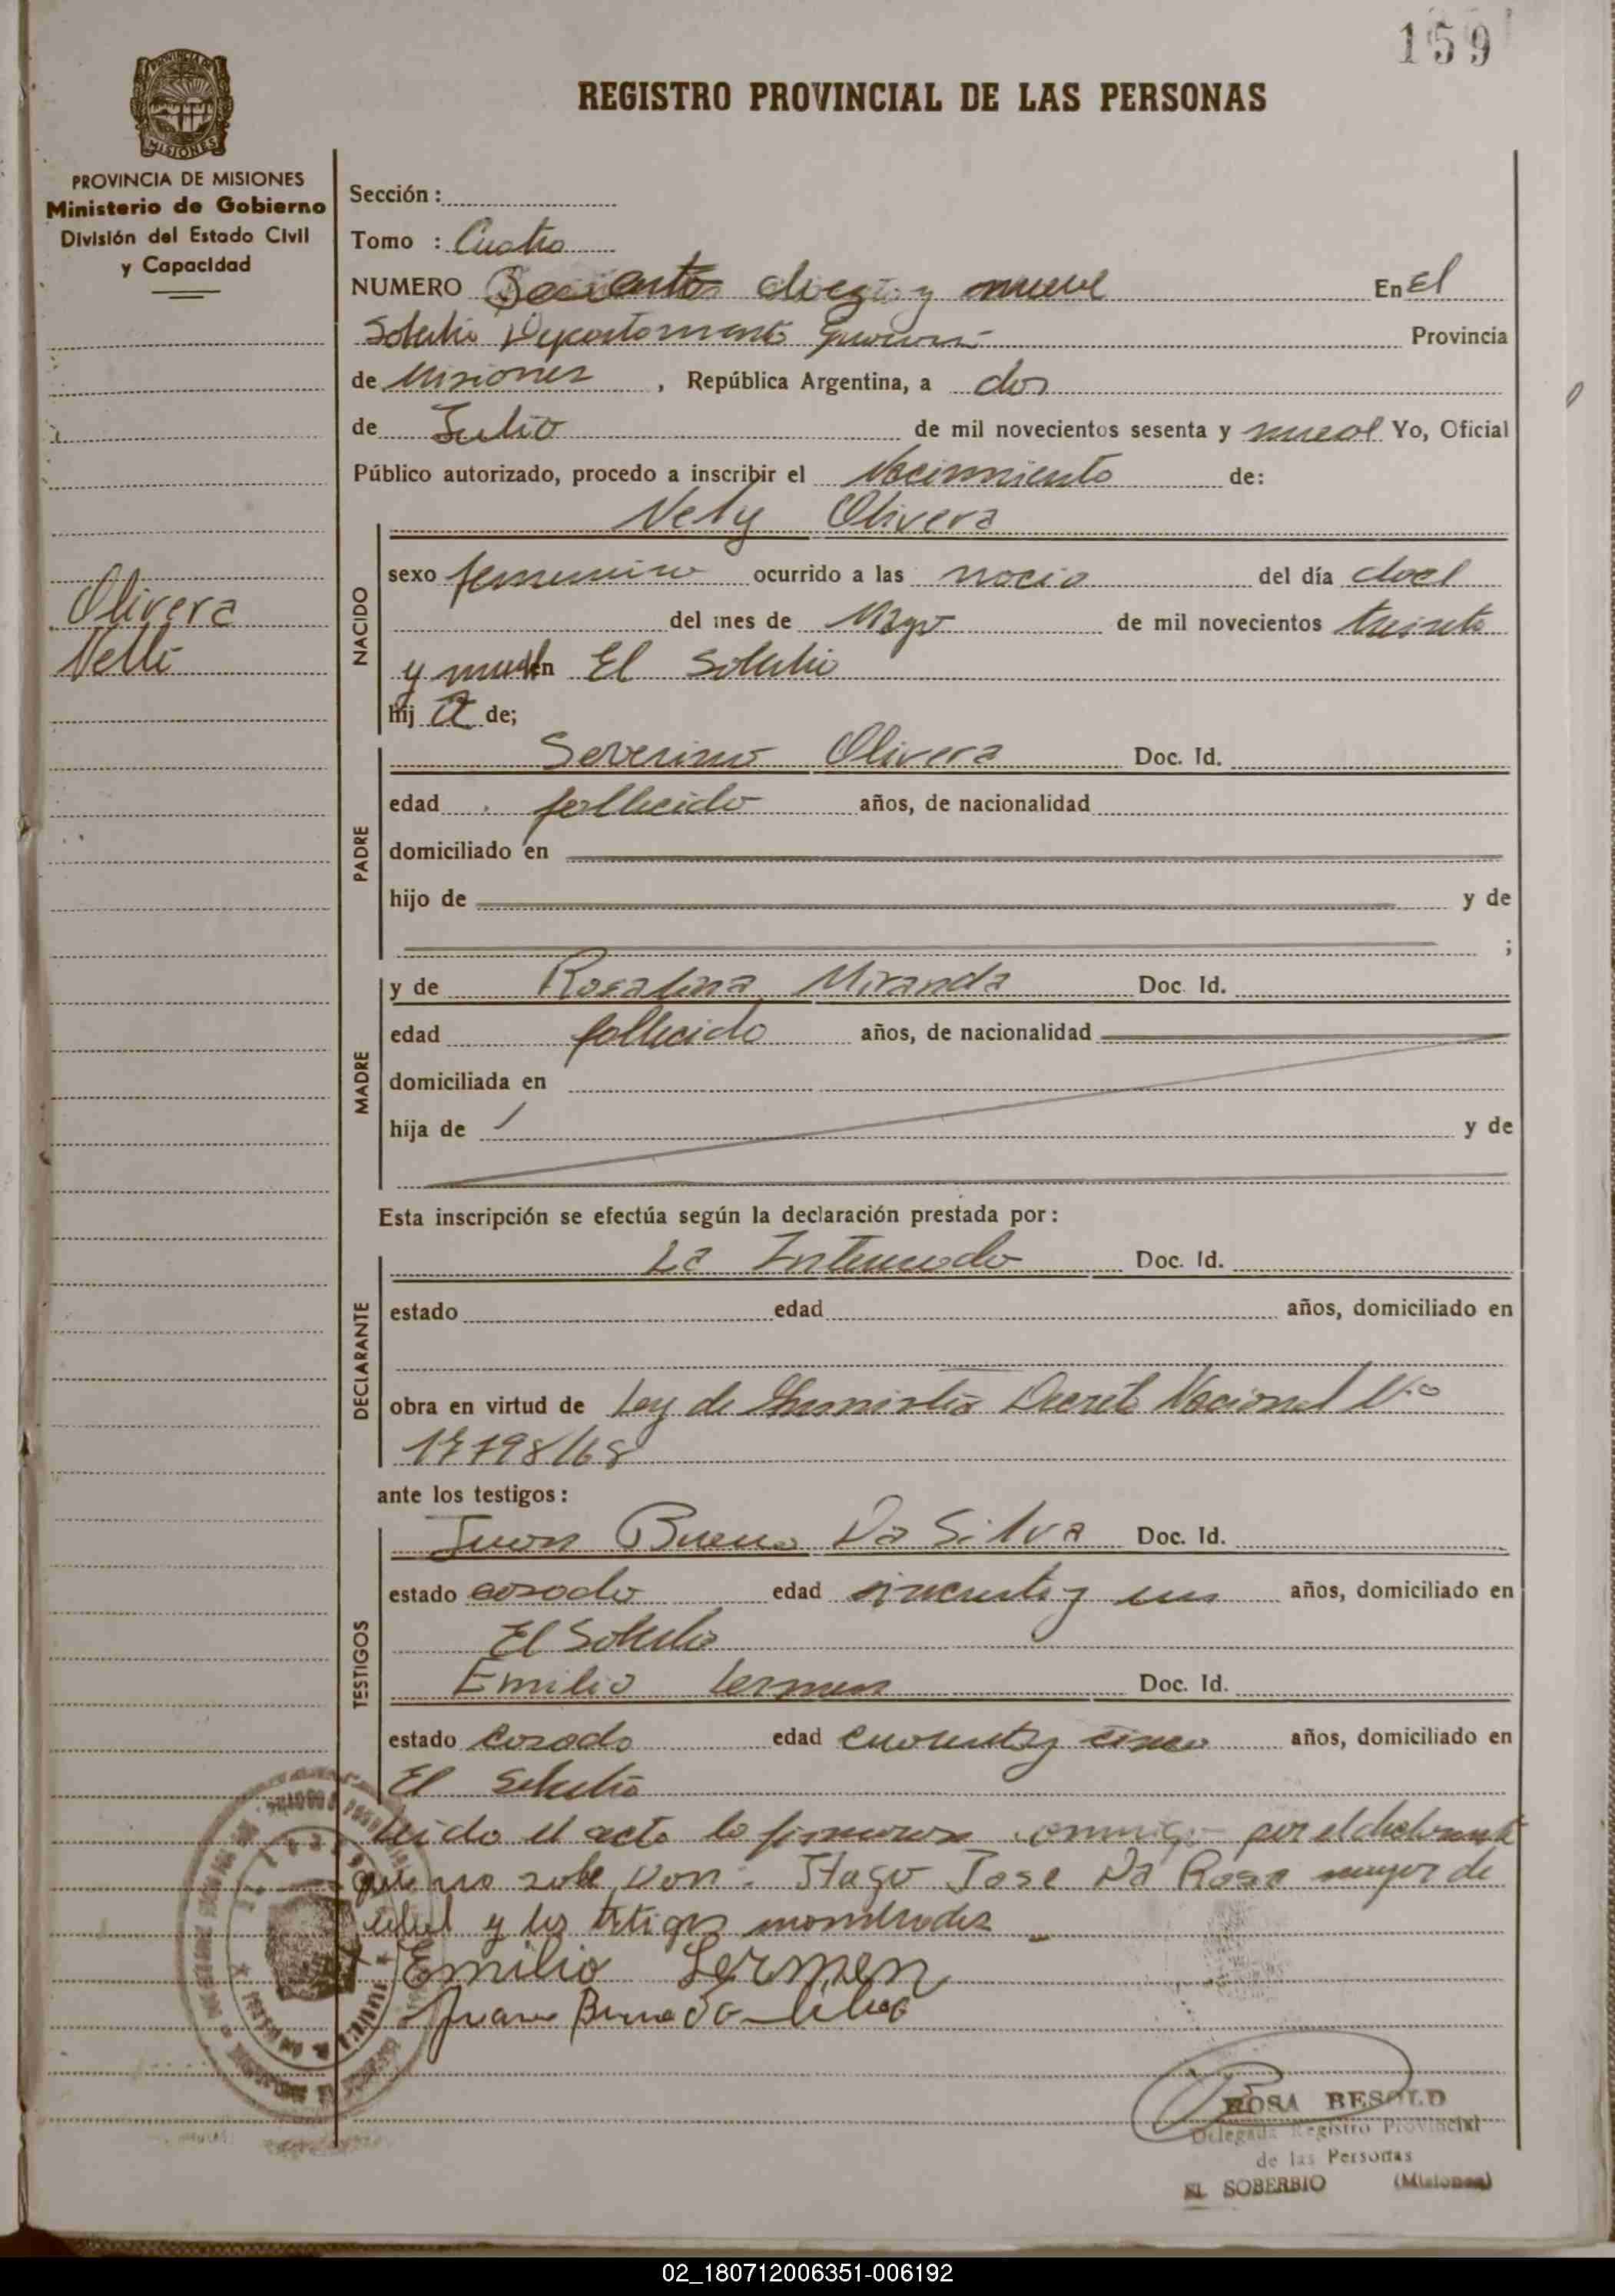 159
REGISTRO PROVINCIAL DE LAS PERSONAS
PROVINCIA DE MISIONES
Ministerio de Gobierno
División del Estado Civil
y Capacidad
Sección :
Tomo : Cuatro
NUMERO diez y nueve En El
Soberbio Departamento Guaraní Provincia
de Misiones , República Argentina, a dos
de Julio de mil novecientos sesenta y nueve Yo, Oficial
Público autorizado, procedo a inscribir el Nacimiento de:
Nely Olivera
Olivera
Nelli
NACIDO
sexo femenino ocurrido a las del día doce
del mes de Mayo de mil novecientos treinta
y nueve en El Soberbio
hij a de;
PADRE
Severino Olivera Doc. Id.
edad fallecido años, de nacionalidad
domiciliado en
hijo de y de
;
MADRE
y de Rosalina Miranda Doc. Id.
edad fallecido años, de nacionalidad
domiciliada en
hija de y de
Esta inscripción se efectúa según la declaración prestada por:
DECLARANTE
La Doc. Id.
estado edad años, domiciliado en
obra en virtud de Ley de Decreto Nacional Nº
17798/68
ante los testigos:
TESTIGOS
Juan Bueno Da Silva Doc. Id.
estado casado edad sincuenta y un años, domiciliado en
El Soberbio
Emilio Lermen Doc. Id.
estado casado edad cuarenta y cinco años, domiciliado en
El Soberbio
Leido el acta la firmaron conmigo por el declarante
que no sabe Don: Jose Da Rosa mayor de
edad y los testigos
Emilio Lermen
Juan Bueno da Silva
ROSA BESOLD
Delegada Registro Provincial
de las Personas
EL SOBERBIO (Misiones)
02_180712006351-006192